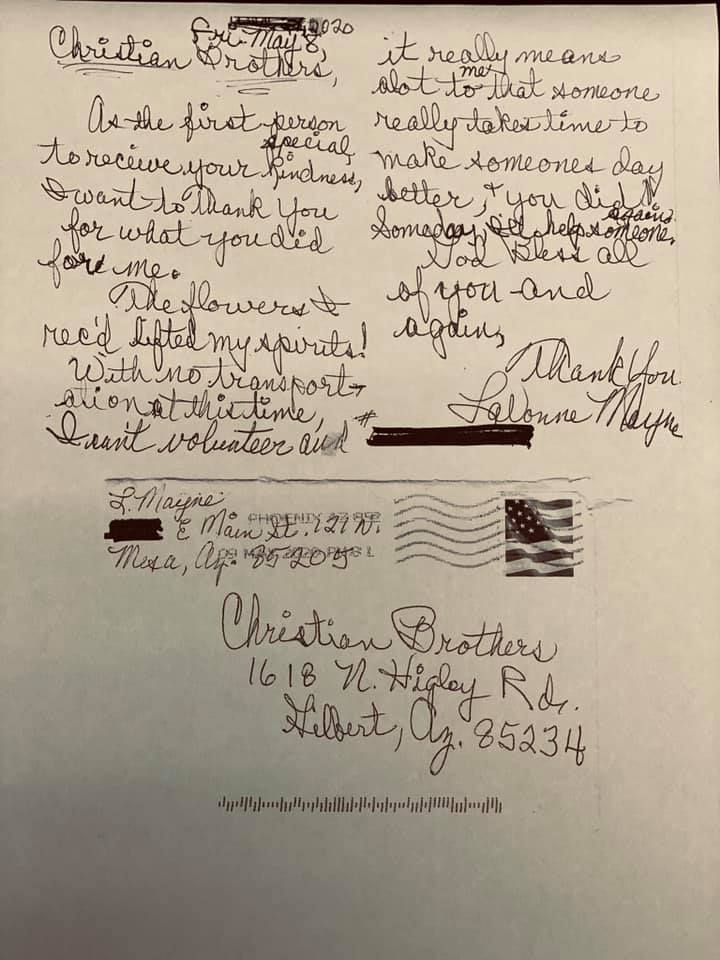 Fri. May 8, 2020
Christian Brothers,
As the first person
to receive your special kindness,
I want to Thank You
for what you did
for me.
The flowers I
rec'd lifted my spirits!
With no transport-
ation at this time,
I can't volunteer and
it really means
alot to me that someone
really takes time to
make someones day
better, & you did!
Someday, I'll help someone, again.
God Bless all
of you and
again,
Thank You.
LaVonne Mayne
#
L. Mayne
E Main St.
Mesa, Az. 85205
PHOENIX AZ 852
Christian Brothers
1618 N. Higley Rd.
Gilbert, Az. 85234